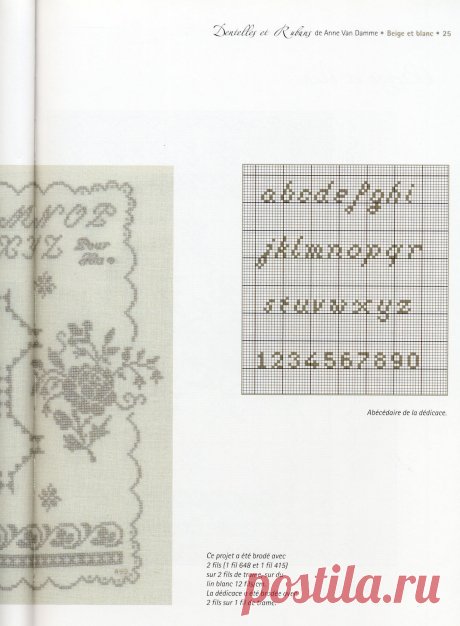 Dentelles et Rubans de Anne Van Damme • Beige et blanc • 25
MNOP
XYZ Pour
abcdefghi
jklmnopqr
stuvwxyz
1234567890
Abécédaire de la dédicace.
Ce projet a été brodé avec
2 fils (1 fil 648 et 1 fil 415)
sur 2 fils de trame, sur du
lin blanc 12 fils/cm.
La dédicace a été brodée avec
2 fils sur 1 fil de trame.
liveinternet.ru